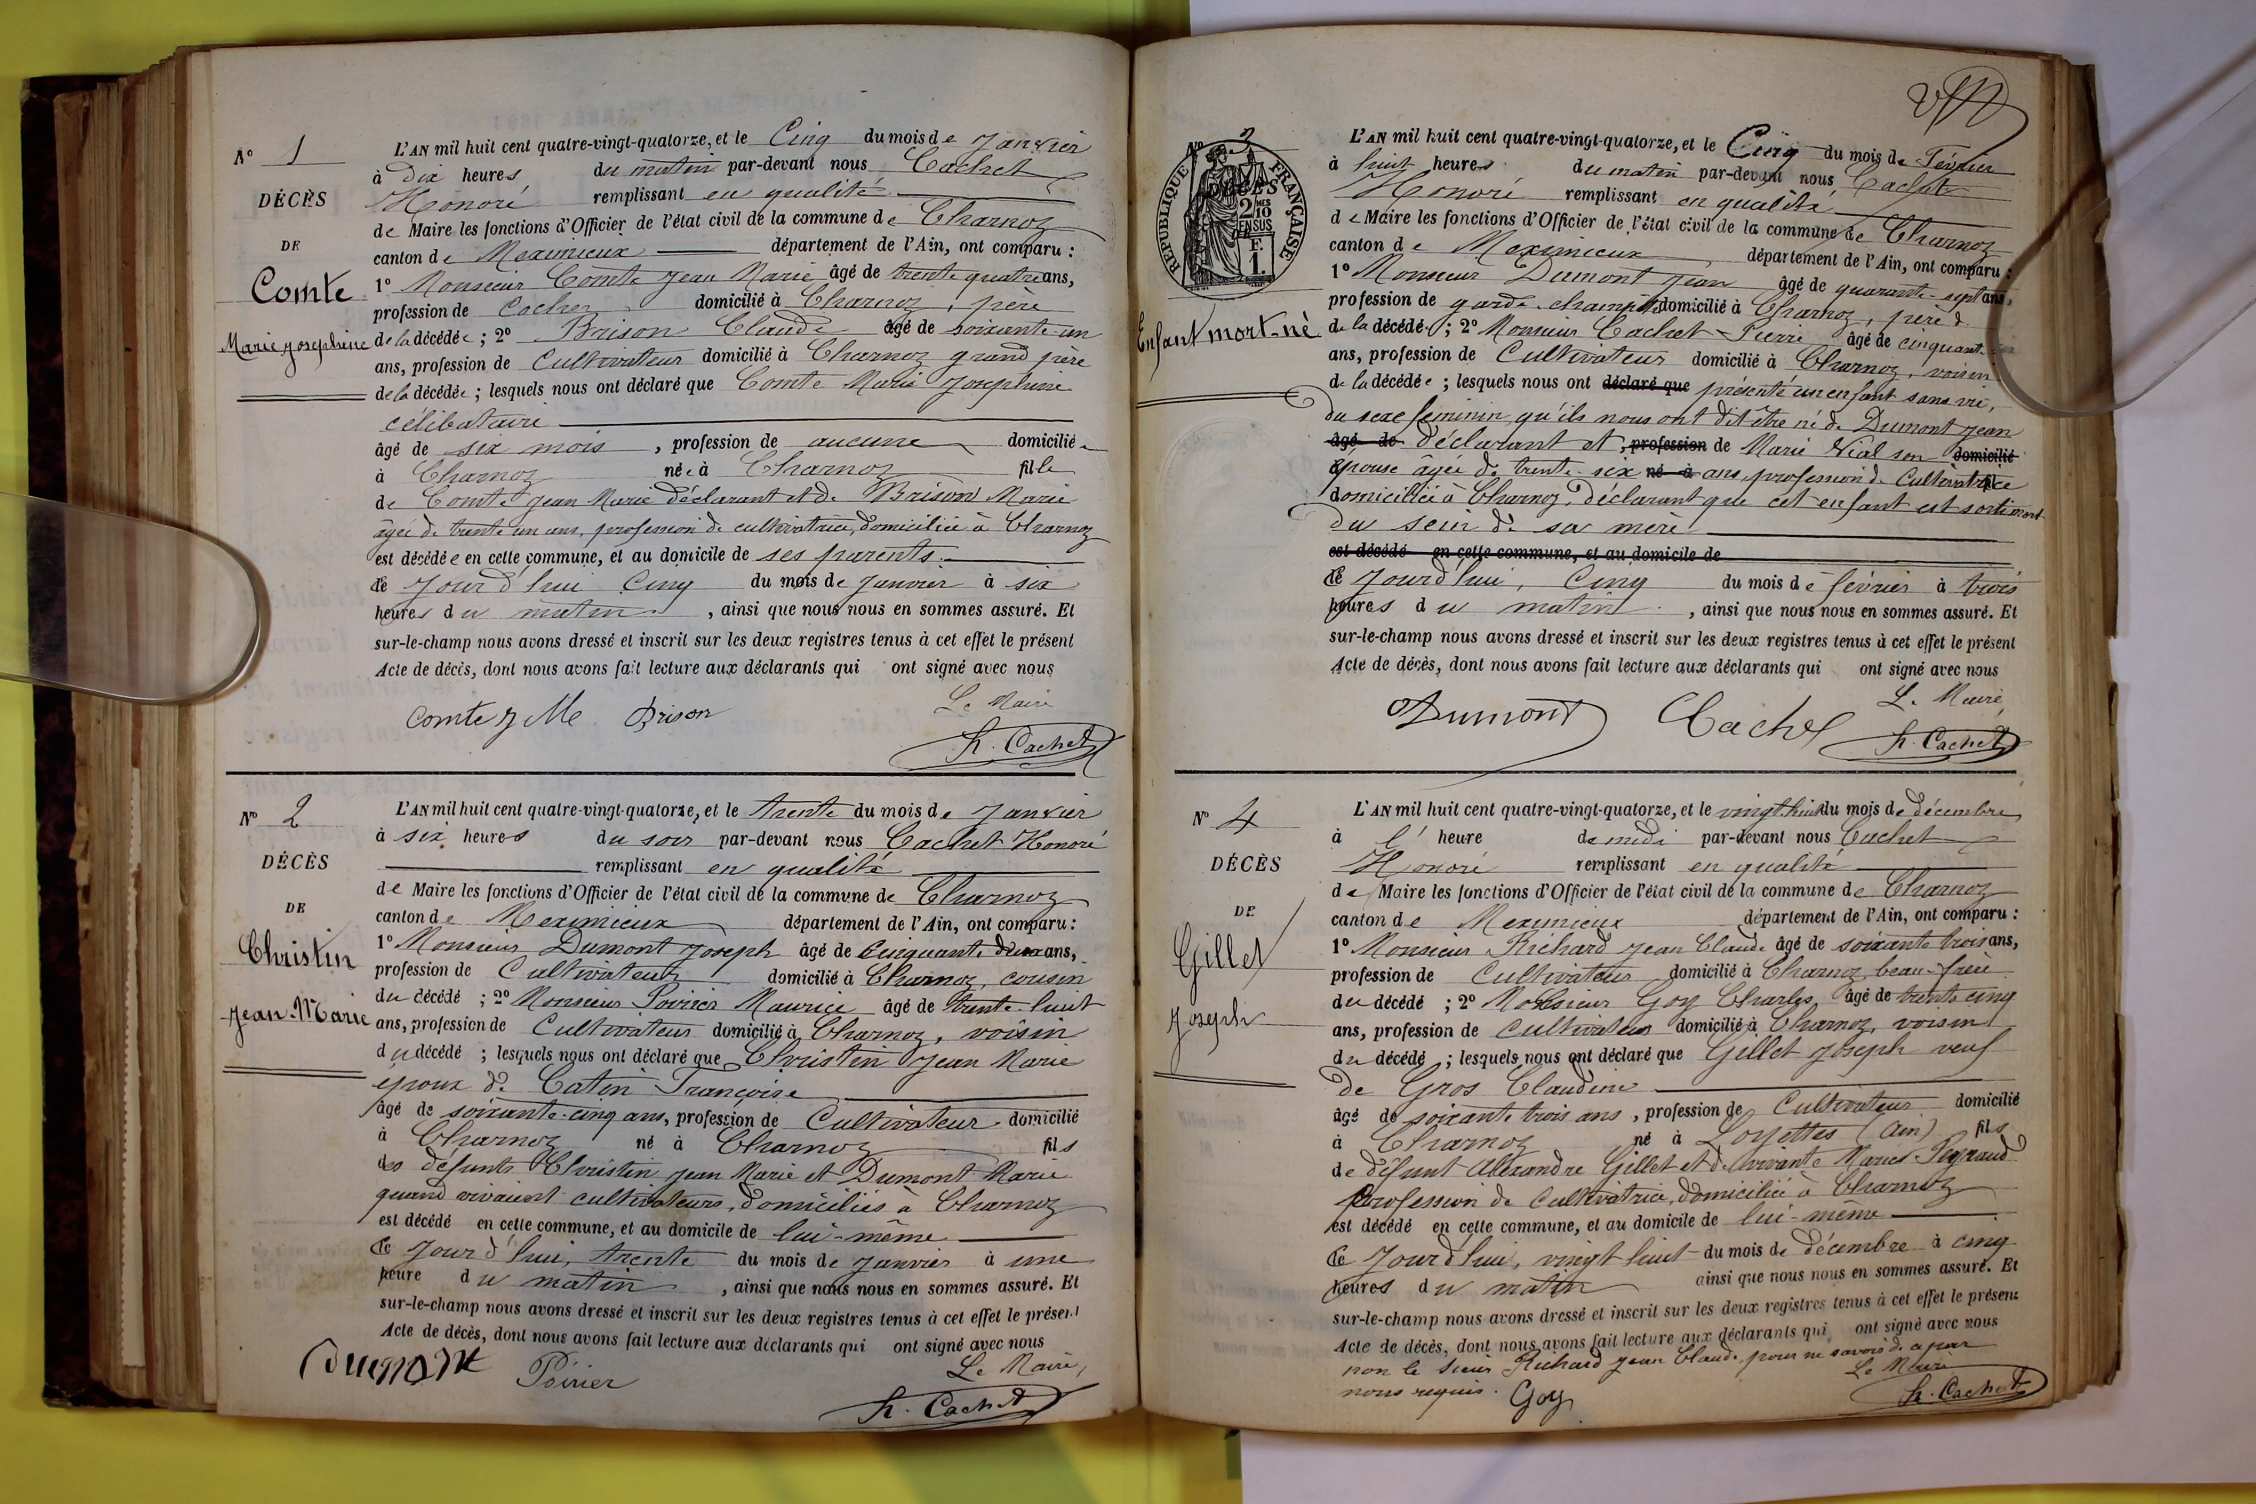 N° 1
DÉCÈS
DE
Comte
Marie Josephine
L'AN mil huit cent quatre-vingt-quatorze, et le Cinq du mois de Janvier
à dix heures du matin par-devant nous Cachet
Honoré remplissant en qualité
de Maire les fonctions d'Officier de l'état civil de la commune de Charnoz
canton de Meximieux département de l'Ain, ont comparu :
1° Monsieur Comte Jean Marie âgé de trente quatre ans,
profession de Cocher domicilié à Charnoz, père
de la décédée ; 2° Brison Claude âgé de soixante-un
ans, profession de Cultivateur domicilié à Charnoz grand père
de la décédée ; lesquels nous ont déclaré que Comte Marie Josephine
célibataire
âgé de six mois, profession de aucune domicilié
à Charnoz née à Charnoz fille
de Comte Jean Marie déclarant et de Brison Marie
âgée de trente un ans, profession de cultivatrice, domiciliée à Charnoz
est décédée en cette commune, et au domicile de ses parents
ce jourd'hui Cinq du mois de Janvier à six
heures du matin, ainsi que nous nous en sommes assuré. Et
sur-le-champ nous avons dressé et inscrit sur les deux registres tenus à cet effet le présent
Acte de décès, dont nous avons fait lecture aux déclarants qui ont signé avec nous
Le Maire
Comte J M Brison
h. Cachet
N° 2
DÉCÈS
DE
Christin
Jean-Marie
L'AN mil huit cent quatre-vingt-quatorze, et le trente du mois de Janvier
à six heures du soir par-devant nous Cachet Honoré
remplissant en qualité
de Maire les fonctions d'Officier de l'état civil de la commune de Charnoz
canton de Meximieux département de l'Ain, ont comparu :
1° Monsieur Dumont Joseph âgé de Cinquante deux ans,
profession de Cultivateur domicilié à Charnoz, cousin
du décédé ; 2° Monsieur Poirier Maurice âgé de trente-huit
ans, profession de Cultivateur domicilié à Charnoz, voisin
du décédé ; lesquels nous ont déclaré que Christin Jean Marie
époux de Catin Françoise
âgé de soixante-cinq ans, profession de Cultivateur domicilié
à Charnoz né à Charnoz fils
des défunts Christin Jean Marie et Dumont Marie
quand vivaient cultivateurs, domiciliés à Charnoz
est décédé en cette commune, et au domicile de lui-même
ce jourd'hui, trente du mois de Janvier à une
heure du matin, ainsi que nous nous en sommes assuré. Et
sur-le-champ nous avons dressé et inscrit sur les deux registres tenus à cet effet le présent
Acte de décès, dont nous avons fait lecture aux déclarants qui ont signé avec nous
Dumont Poirier Le Maire,
h. Cachet
N° 3
DÉCÈS
RÉPUBLIQUE FRANÇAISE
2 MES 10 EN SUS
F. 1.
Enfant mort-né
L'AN mil huit cent quatre-vingt-quatorze, et le Cinq du mois de Février
à huit heures du matin par-devant nous Cachet
Honoré remplissant en qualité
de Maire les fonctions d'Officier de l'état civil de la commune de Charnoz
canton de Meximieux département de l'Ain, ont comparu :
1° Monsieur Dumont Jean âgé de quarante-sept ans,
profession de garde-champêtre domicilié à Charnoz, père d
de la décédée ; 2° Monsieur Cachet Pierre âgé de cinquante
ans, profession de Cultivateur domicilié à Charnoz, voisin
de la décédée ; lesquels nous ont déclaré que présenté un enfant sans vie,
du sexe féminin, qu'ils nous ont dit être né de Dumont Jean
âgé de déclarant et, profession de Marie Vial son domicilié
épouse âgée de trente-six né à ans, profession de Cultivatrice
domiciliée à Charnoz, déclarant que cet enfant est sorti mort
du sein de sa mère
est décédé en cette commune, et au domicile de
ce jourd'hui, Cinq du mois de février à trois
heures du matin, ainsi que nous nous en sommes assuré. Et
sur-le-champ nous avons dressé et inscrit sur les deux registres tenus à cet effet le présent
Acte de décès, dont nous avons fait lecture aux déclarants qui ont signé avec nous
Le Maire,
Dumont Cachet h. Cachet
N° 4
DÉCÈS
DE
Gillet
Joseph
L'AN mil huit cent quatre-vingt-quatorze, et le vingt-huit du mois de décembre
à l' heure de midi par-devant nous Cachet
Honoré remplissant en qualité
de Maire les fonctions d'Officier de l'état civil de la commune de Charnoz
canton de Meximieux département de l'Ain, ont comparu :
1° Monsieur Richard Jean Claude âgé de soixante trois ans,
profession de Cultivateur domicilié à Charnoz, beau-frère
du décédé ; 2° Monsieur Goy Charles, âgé de trente cinq
ans, profession de cultivateur domicilié à Charnoz, voisin
du décédé ; lesquels nous ont déclaré que Gillet Joseph veuf
de Gros Claudine
âgé de soixante trois ans, profession de Cultivateur domicilié
à Charnoz né à Loyettes (Ain) fils
de défunt Alexandre Gillet et de vivante Marie Peyraud
profession de Cultivatrice, domiciliée à Charnoz
est décédé en cette commune, et au domicile de lui-même
ce jourd'hui, vingt huit du mois de décembre à cinq
heures du matin ainsi que nous nous en sommes assuré. Et
sur-le-champ nous avons dressé et inscrit sur les deux registres tenus à cet effet le présent
Acte de décès, dont nous avons fait lecture aux déclarants qui ont signé avec nous
non le sieur Richard Jean Claude pour ne savoir de ce par
nous requis. Goy Le Maire
h. Cachet